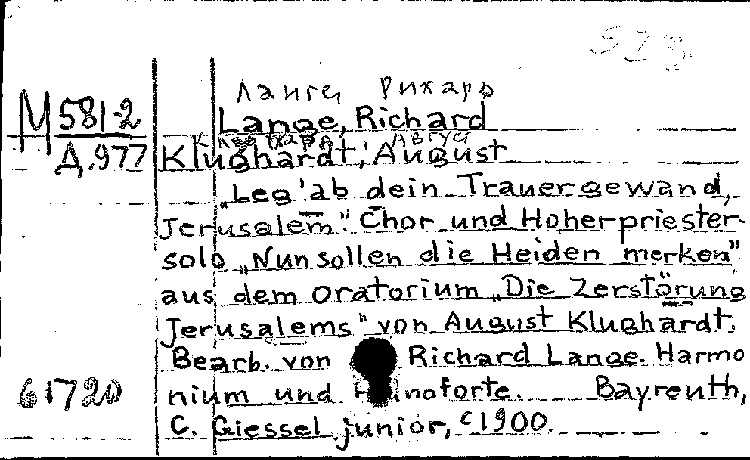 528
Ланге, Рихард
М 581-2
Lange, Richard
Клугхардт, Август
Д.977
Klughardt, August
„Leg' ab dein Trauergewand,
Jerusalem." Chor und Hoherpriester-
solo „Nun sollen die Heiden merken"
aus dem Oratorium „Die Zerstörung
Jerusalems" von August Klughardt.
Bearb. von Richard Lange. Harmo
61720
nium und Pianoforte. Bayreuth,
C. Giessel junior, c1900.